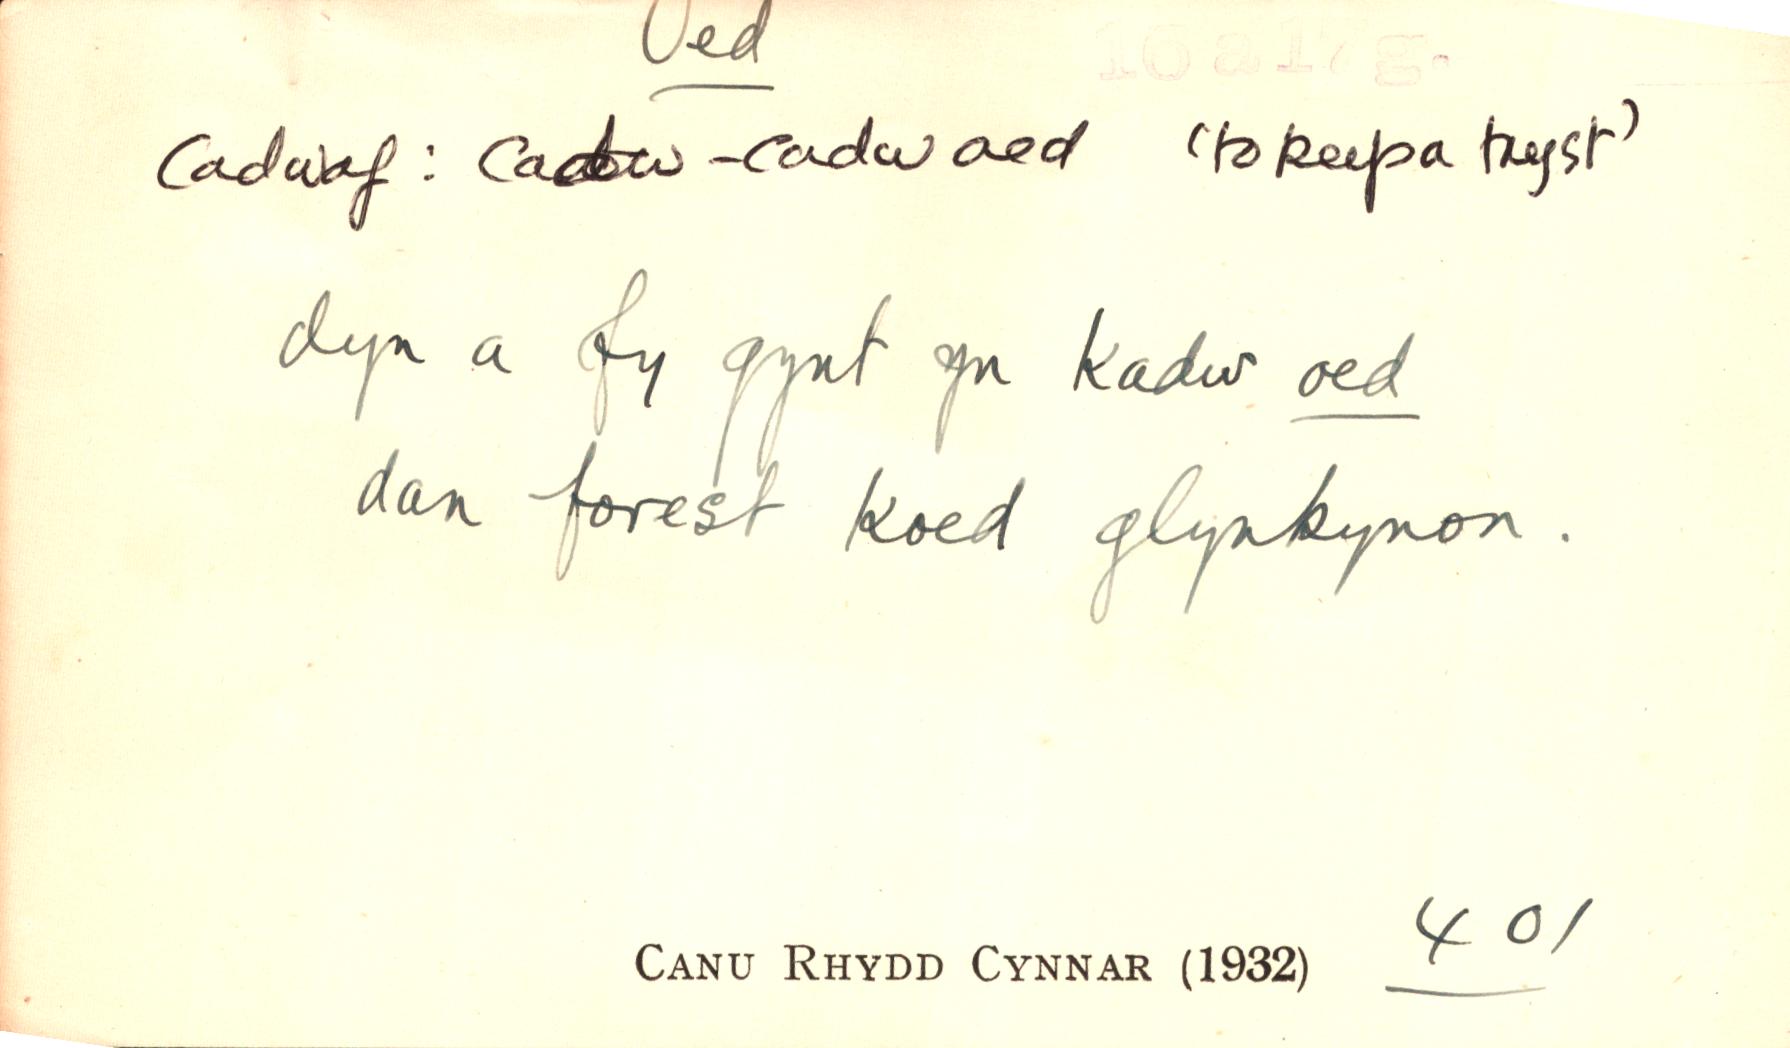 Oed
Cadwaf: Cadw - cadw oed ('to keep a tryst')
dyn a fy gynt yn kadw oed
dan forest koed glynkynon.
CANU RHYDD CYNNAR (1932) 401